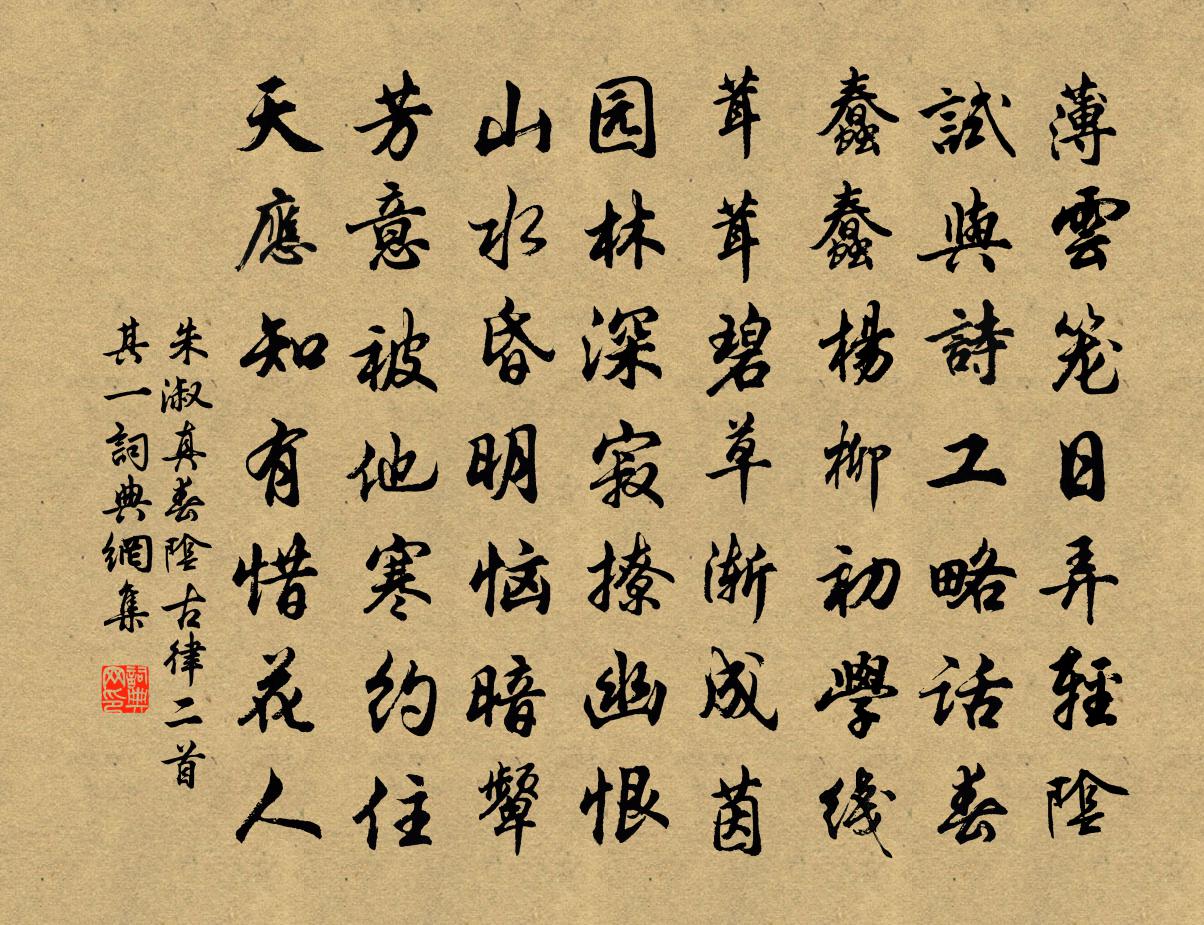 薄雲笼日弄輕陰
試與詩工略话春
蠢蠢楊柳初學线
茸茸碧草渐成茵
园林深寂撩幽恨
山水昏明恼暗颦
芳意被他寒约住
天應知有惜花人
朱淑真春陰古律二首
其一詞典網集
詞典网印